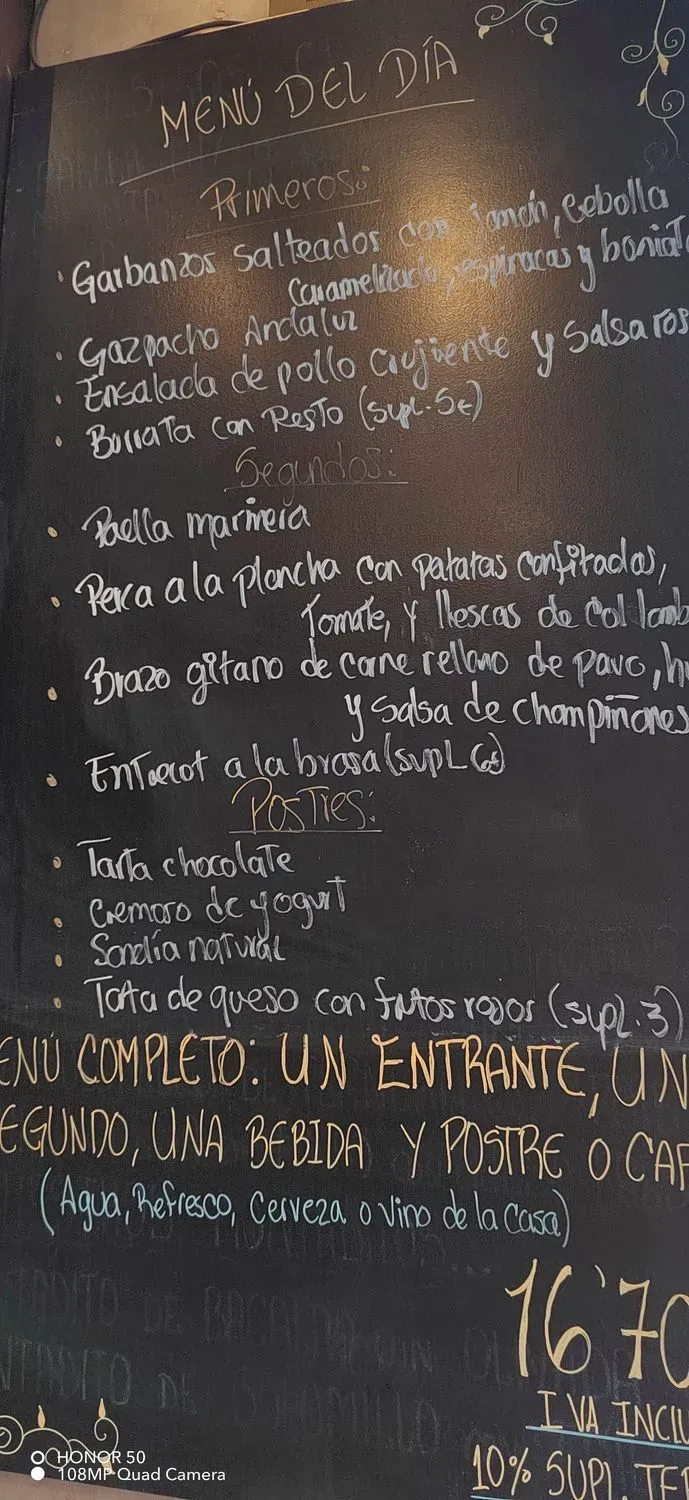 MENÚ DEL DÍA
Primeros:
Garbanzos salteados con jamón, cebolla
Caramelizada, espinacas y boniat
Gazpacho Andaluz
Ensalada de pollo crujiente y salsa ros
Burrata con Pesto (supl. 5€)
Segundos:
Paella marinera
Perca a la plancha con patatas confitadas,
Tomate, y llescas de col lomb
Brazo gitano de carne relleno de pavo, hu
y salsa de champiñones
Entrecot a la brasa (supl 6€)
Postres:
Tarta chocolate
Cremoso de yogurt
Sandía natural
Tarta de queso con frutos rojos (supl. 3)
ENÚ COMPLETO: UN ENTRANTE, UN
EGUNDO, UNA BEBIDA Y POSTRE O CAF
(Agua, Refresco, Cerveza o vino de la casa)
16'70
IVA INCLU
10% SUPL. TER
HONOR 50
108MP Quad Camera